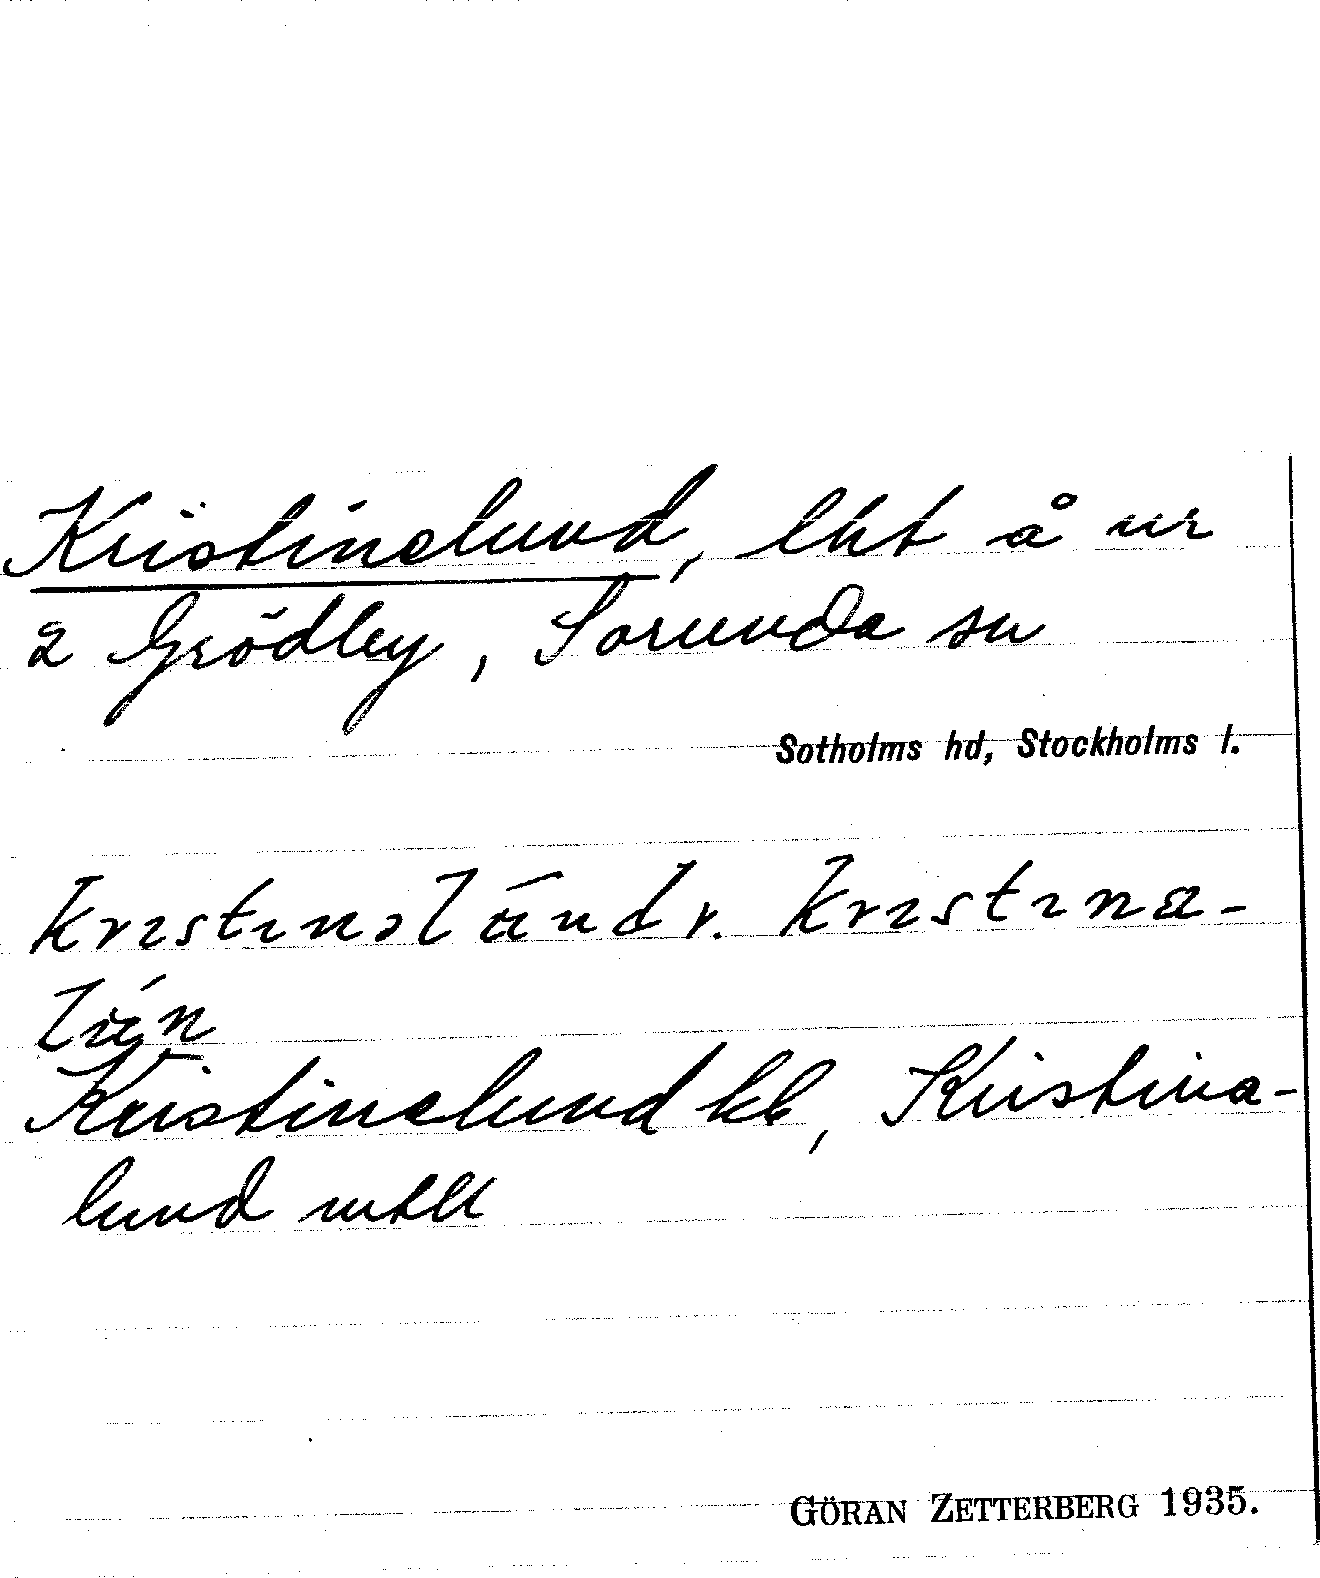 Kristinelund, lht å nr
2 Grödby, Sorunda sn
Sotholms hd, Stockholms l.
kristinəlúnd r. kristina-
lún
Kristinelund kb, Kristina-
lund mtll
GÖRAN ZETTERBERG 1935.